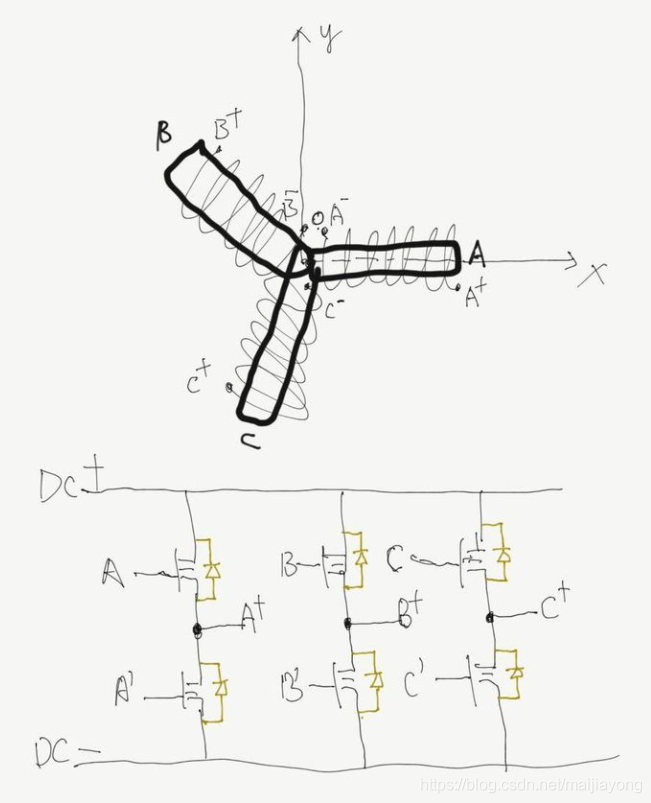 y
B B⁺
B⁻ O A⁻
A
X
A⁺
C⁻
C⁺
C
DC+
A B C
A⁺ B⁺ C⁺
A' B' C'
DC-
https://blog.csdn.net/maijiayong